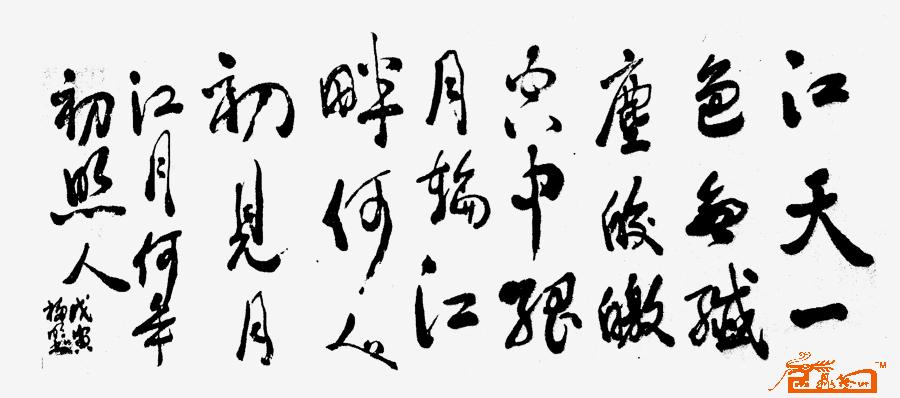 江天一
色無纖
塵皎皦
空中孤
月輪江
畔何人
初見月
江月何年
初照人
戊寅